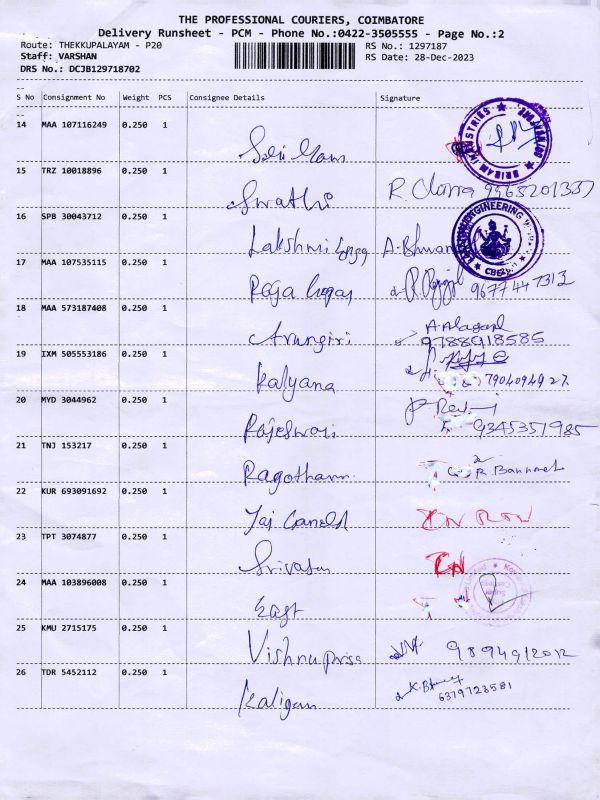 THE PROFESSIONAL COURIERS, COIMBATORE
Delivery Runsheet - PCM - Phone No.:0422-3505555 - Page No.:2
Route: THEKKUPALAYAM - P20 RS No.: 1297187
Staff: VARSHAN RS Date: 28-Dec-2023
DRS No.: DCJB129718702
S No Consignment No Weight PCS Consignee Details Signature
14 MAA 107116249 0.250 1
SRIRAM INDUSTRIES
15 TRZ 10018896 0.250 1
Swathi R.
16 SPB 30043712 0.250 1
Lakshmi Engg
ENGINEERING
17 MAA 107535115 0.250 1
Raja 9677447313
18 MAA 573187408 0.250 1
Arungiri 9788918585
19 IXM 505553186 0.250 1
Kalyana 7904094927
20 MYD 3044962 0.250 1
Rajeswari 9345351985
21 TNJ 153217 0.250 1
Ragotham
22 KUR 693091692 0.250 1
23 TPT 3074877 0.250 1
Srivasan
24 MAA 103896008 0.250 1
East
25 KMU 2715175 0.250 1
Vishnupriya
26 TDR 5452112 0.250 1
Kaligan 6379723581